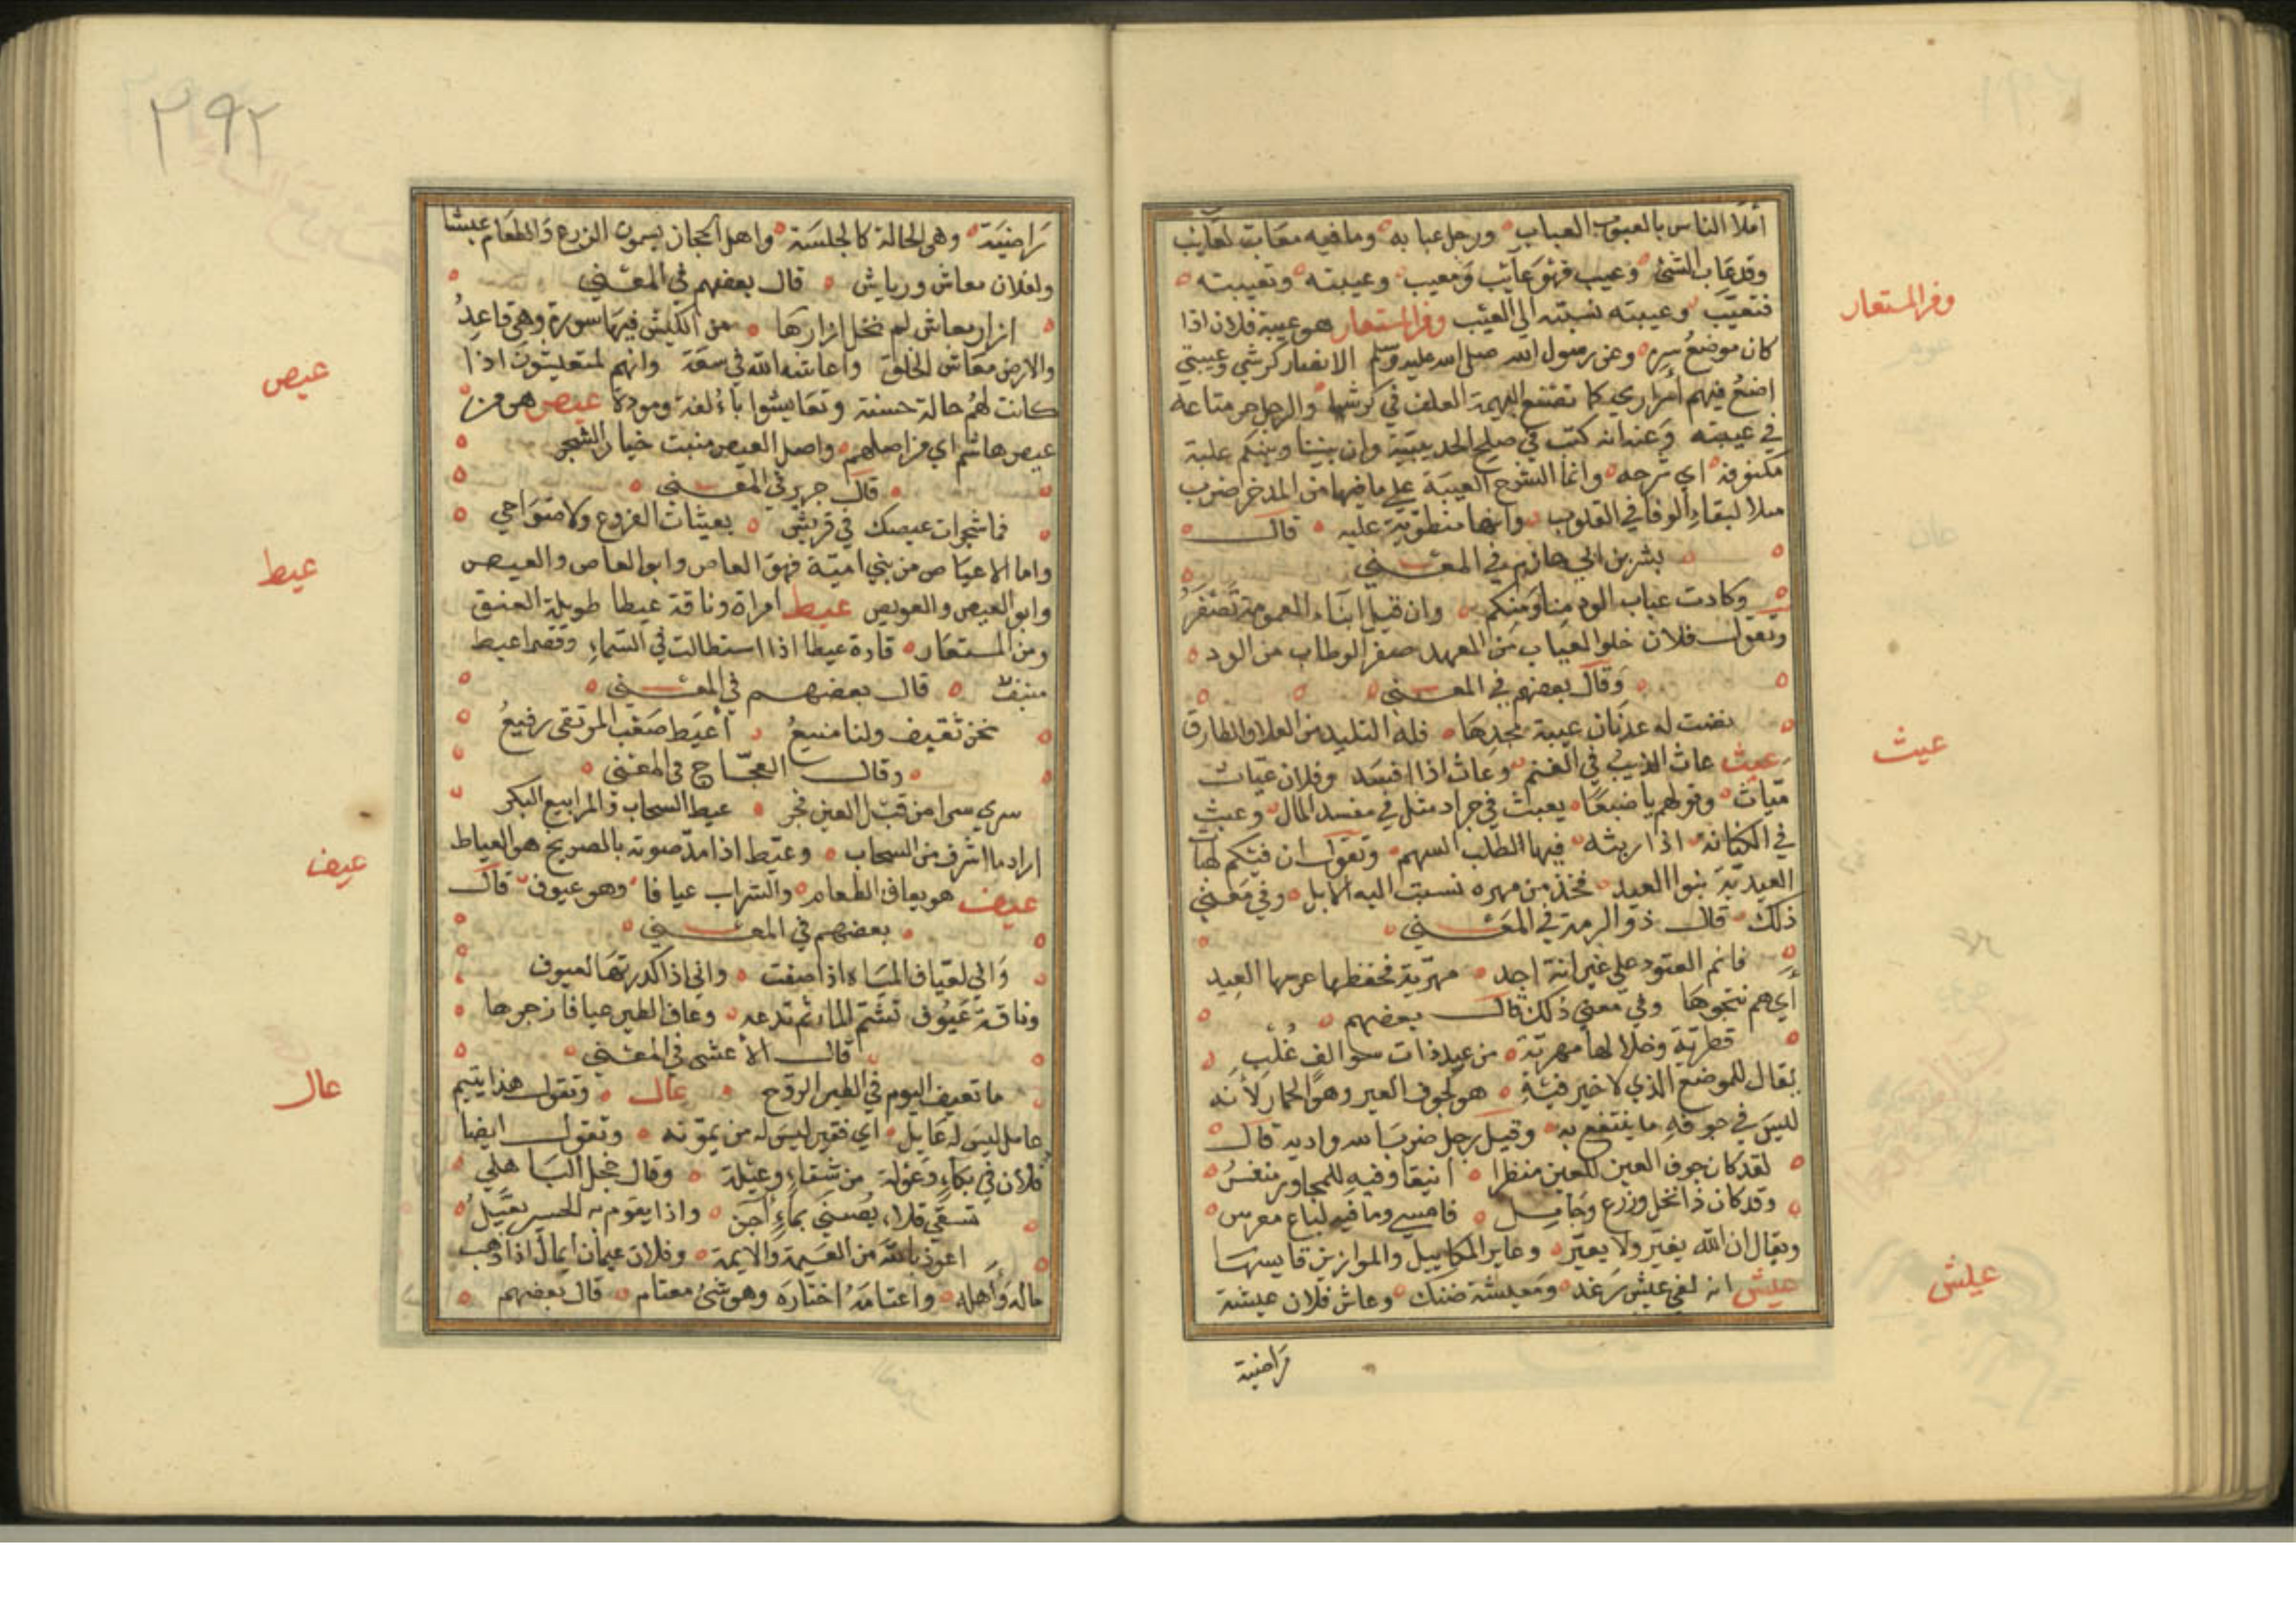 املا الناس بالعيوب العياب ورجل عيابه وما فيه معاب لعايب
وقد عاب الشئ وعيب فهو عائب ومعيب وعيبته وتعيبته
فتعيب وعيبته نسبته الى العيب ومن المستعار هو عيبة فلان اذا
ومن المستعار
كان موضع سره وعن رسول الله صلى الله عليه وسلم الانصار كرشي وعيبتي
اضع فيهم اسراري كما تضع البهيمة العلف في كرشها والرجل حر متاعه
في عيبته وعنه انه كتب في صلح الحديبية وان بيننا وبينكم عيبة
مكفوفة اي شرجه وانما الشرج العيبة على ما فيها من المدخر ضرب
مثلا لبقاء الوفا في القلوب وانها منطوية عليه قال
بشر بن ابي حازم في المعنى
وكادت عياب الود منا ومنكم وان قيل ابناء العمومة تصفر
وتقول فلان خلو العياب من العهد صفر الوطاب من الود
وقال بعضهم في المعنى
نضت له عدنان عيبة مجدها فله التليد من العلا والطارق
عيث عاث الذيب في الغنم وعاث اذا افسد وفلان عياث
عيث
وقولهم يا ضبعا يعبث في جراد مثل في مفسد المال وعيث
في الكنانة اذا ريثه فيها لطلب السهم وتقول ان فيكم لهات
العيدية بنوا العيد فخذ من مهره نسبت اليه الابل وفي معنى
ذلك قال ذو الرمة في المعنى
فانم القتود على عيرانة اجد مهرية مخضتها غرسها العيد
اي هم نتجوها وفي معنى ذلك قال بعضهم
قطرية وخلالها مهرية من عيد ذات سوالف غلب
يقال للموضع الذي لا خير فيه هو كجوف العير وهو الحمار لانه
ليس في جوفه ما ينتفع به وقيل رجل ضرب اسد واديه قال
لقد كان جوف العير للعين منظرا انيقا وفيه للمجاور منفس
وقد كان ذا نخل وزرع وجامل فامسى وما فيه لباع معرس
ويقال ان الله يغير ولا يعير وعاير المكاييل والموازين قايسها
عيش انه لفي عيش رغد ومعيشة ضنك وعاش فلان عيشة
عيش
راضية
٢٩٢
راضية وهي الحالة كالجلسة واهل الحجاز يسمون الزرع والطعام عيشا
ولفلان معاش ورياش قال بعضهم في المعنى
ازار معاش لم نخل ازارها من الكيش فيها سورة وهي قاعد
والارض معاش الخلق واعاشه الله في سعة وانهم لمتعيشون اذا
كانت لهم حالة حسنة وتعايشوا بالفة ومودة عيص هو من
عيص
عيص هاشم اي من اصلهم واصل العيص منبت خيار الشجر
قال جرير في المعنى
فما شجرات عيصك في قريش بعيشات الفروع ولا ضواحي
واما الاعياص من بني امية فهو العاص وابو العاص والعيص
وابو العيص والعويص عيط امراة وناقة عيطا طويلة العنق
عيط
ومن المستعار قارة عيطا اذا استطالت في السماء وقصر اعيط
منيف قال بعضهم في المعنى
نحن ثقيف ولنا منيع اعيط صعب المرتقى رفيع
وقال العجاج في المعنى
سرى سرا من قبل العين فجر عيط السحاب والمرابيع البكر
اراد ما اشرف من السحاب وعيط اذا مد صوته بالصريخ هو العياط
عيف هو يعاف الطعام والشراب عيافا وهو عيوف قال
عيف
بعضهم في المعنى
واني لعياف المياه اذا صفت واني اذا كدرتها لعيوف
وناقة عيوف تشم الماء ثم تدعه وعاف الطير عيافا زجرها
قال الاعشى في المعنى
ما تعيف اليوم في الطير الروح عال وتقول هذا يتيم
عال
عايل ليس له عايل اي فقير ليس له من يمونه وتقول ايضا
فلان في بكاء وعولة من شقاء وعيلة وقال الباهلي
تسقي قلا بماء اجن واذا يقوم به الحسير يعيل
اعوذ بالله من العيمة والايمة وفلان عيمان ايمان اذا ذهب
ماله واهله واعتامه اختاره وهو شئ معتام قال بعضهم